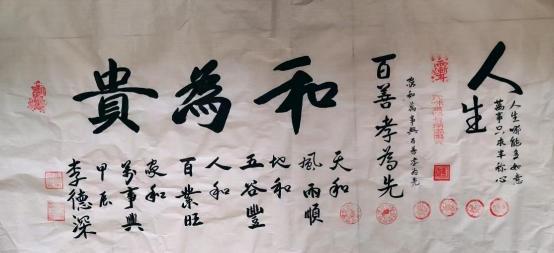 人生
人生哪能多如意
萬事只求半称心
百善孝為先
家和萬事興百善孝為先
和為貴
天和
風雨順
地和
五谷豐
人和
百業旺
家和
萬事興
甲辰
李德深